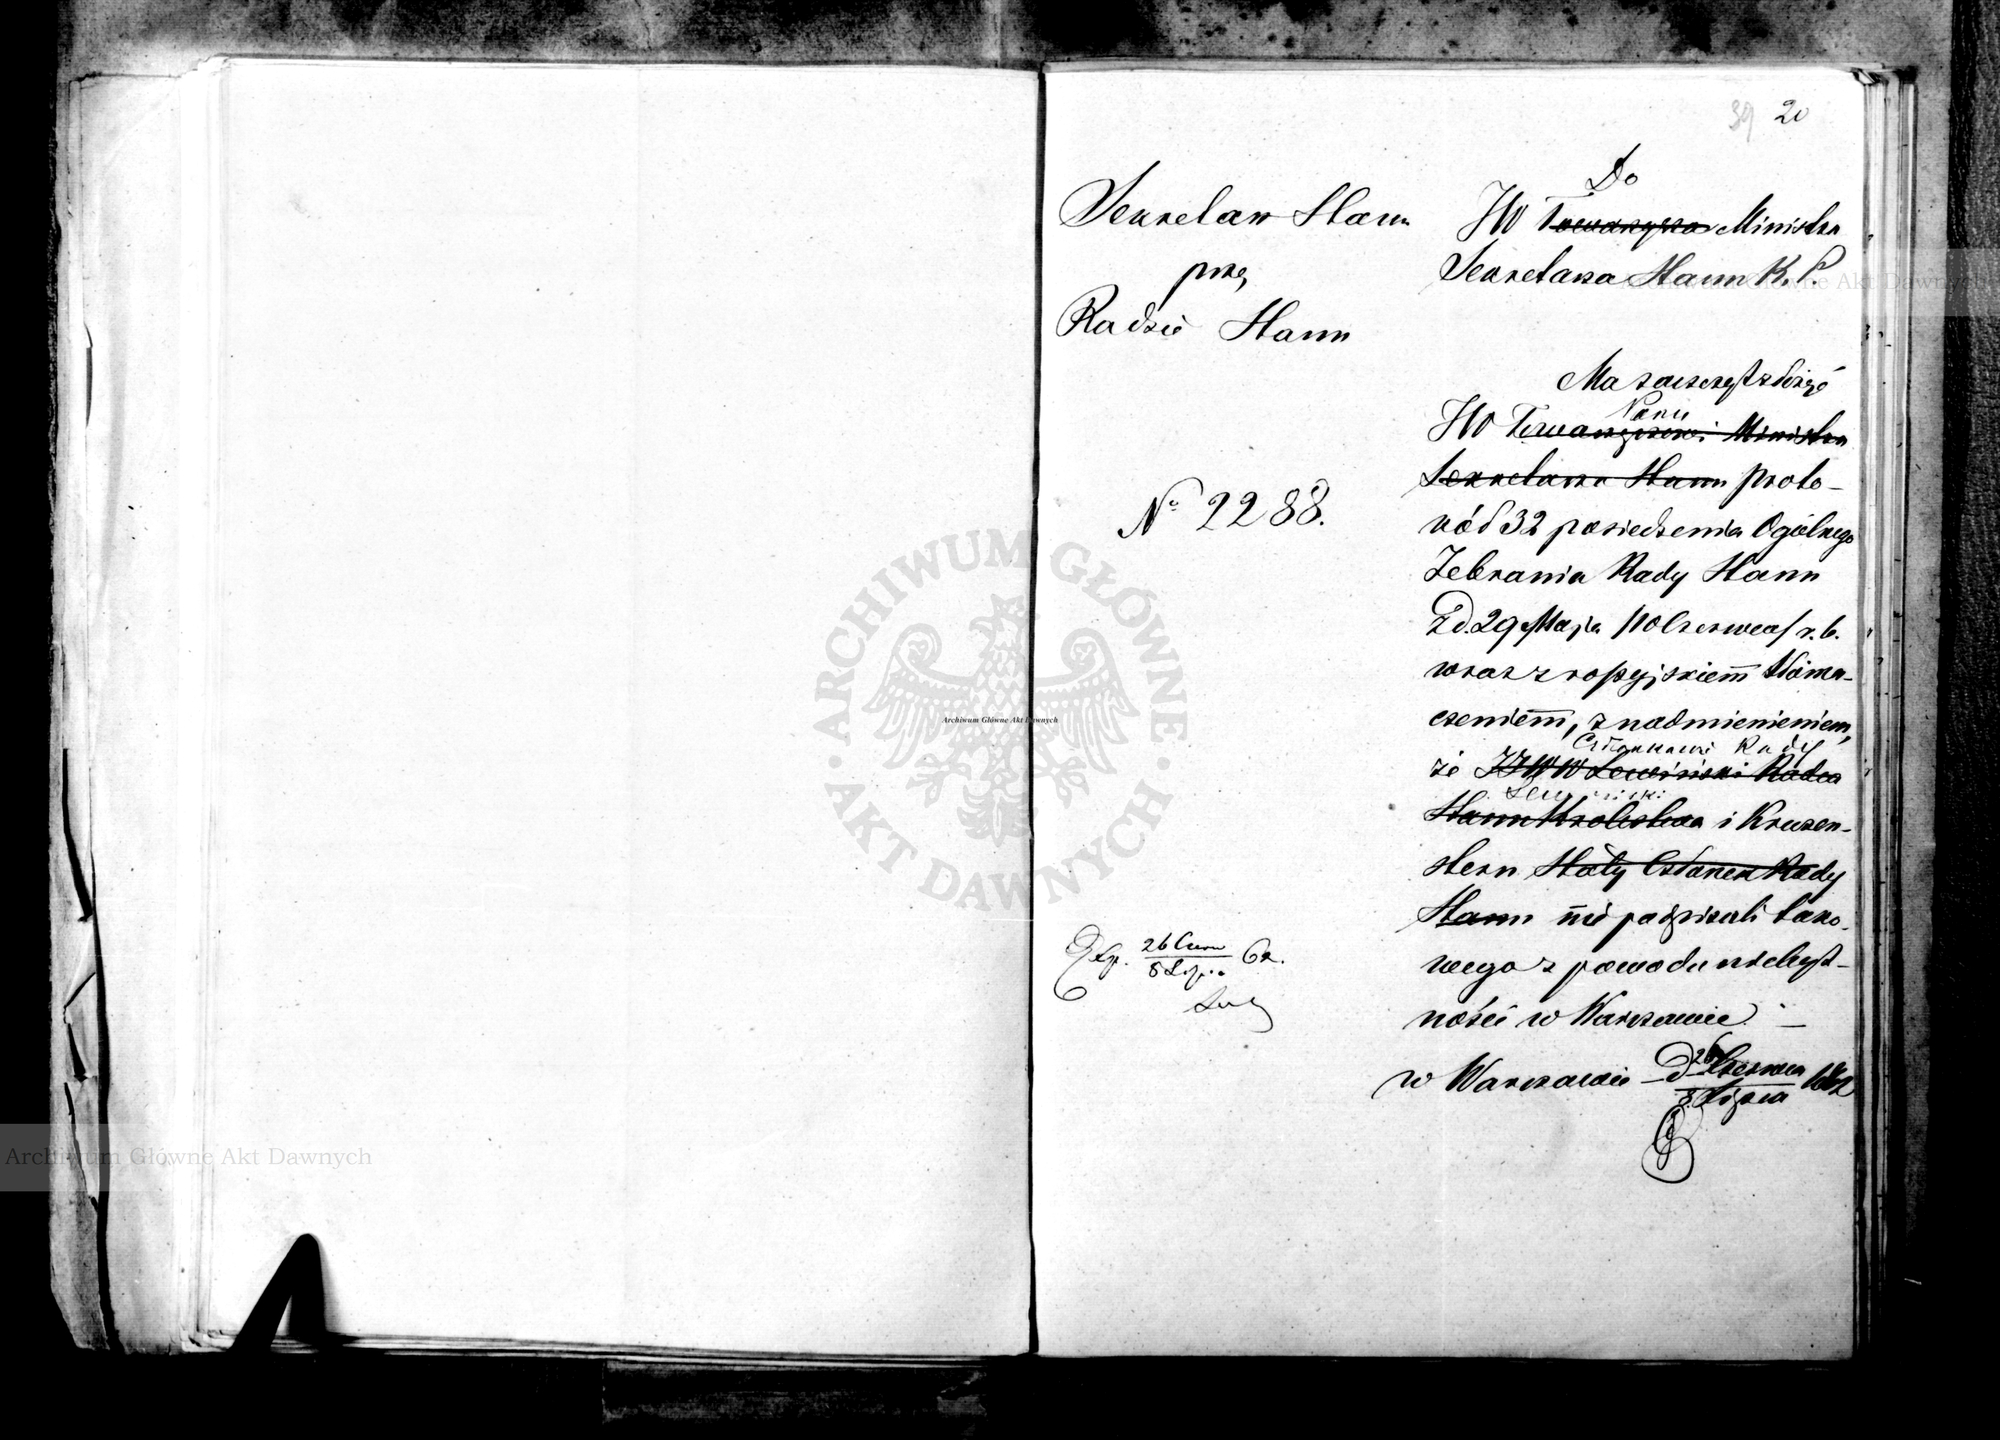 39 20
Sekretarz Stanu
przy
Radzie Stanu
Nº 2288.
Exp. 26 Czerw 62.
8 Lipca
Do
JW Towarzysza Ministra
Sekretarza Stanu K. P.
Ma zaszczyt złożyć
Panu
JW Towarzyszowi Ministra
Sekretarza Stanu proto-
kół 32 posiedzenia Ogólnego
Zebrania Rady Stanu
z d. 29 Maja /10 Czerwca/ r. b.
wraz z rossyjskiem tłóma-
czeniem, z nadmienieniem,
Członkowie Rady
że JJWW Lewiński Radca
Lewiński
Stanu i Kruzen-
stern Stały Członek Rady
Stanu nie podpisali tako-
wego z powodu niebyt-
ności w Warszawie. —
w Warszawie d 26 Czerwca 1862
8 Lipca
ARCHIWUM GŁÓWNE AKT DAWNYCH
Archiwum Główne Akt Dawnych
Archiwum Główne Akt Dawnych
Archiwum Główne Akt Dawnych